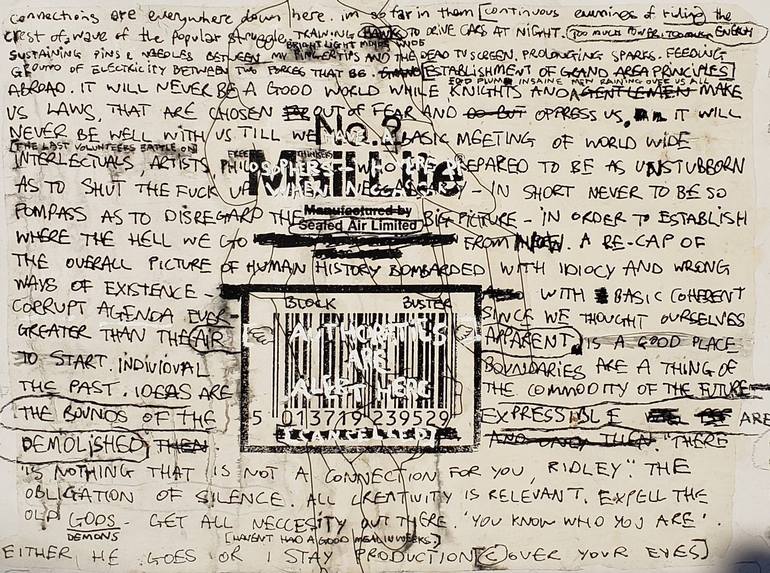 connections are everywhere down here. im so far in them [continuous evenings of riding the
crest of wave of the popular struggle. TRAINING HAWKS TO DRIVE CARS AT NIGHT. (TOO MUCH POWER, TOO MUCH ENERGY
BRIGHT LIGHT MINDS WIDE
SUSTAINING PINS & NEEDLES BETWEEN MY FINGERTIPS AND THE DEAD TV SCREEN, PROLONGING SPARKS. FEEDING
GROUND OF ELECTRICITY BETWEEN TWO FORCES THAT BE. [ESTABLISHMENT OF GRAND AREA PRINCIPLES]
INSANE MEN RAINING OVER US ALL
ABROAD. IT WILL NEVER BE A GOOD WORLD WHILE KNIGHTS AND GENTLEMEN MAKE
US LAWS, THAT ARE CHOSEN OUT OF FEAR AND OPPRESS US. IT WILL
No.8
NEVER BE WELL WITH US TILL WE HAVE A BASIC MEETING OF WORLD WIDE
[THE LAST VOLUNTEERS BATTLE ON
FREE THINKERS
INTERLECTUALS, ARTISTS, PHILOSOPHERS - WHO ARE PREPARED TO BE AS UNSTUBBORN
Mailite
AS TO SHUT THE FUCK UP WHEN NECCESARY. IN SHORT NEVER TO BE SO
Manufactured by
POMPASS AS TO DISREGARD THE BIG PICTURE - IN ORDER TO ESTABLISH
Sealed Air Limited
WHERE THE HELL WE GO FROM A RE-CAP OF
THE OVERALL PICTURE OF HUMAN HISTORY BOMBARDED WITH IDIOCY AND WRONG
WAYS OF EXISTENCE WITH BASIC COHERENT
BLOCK BUSTER
CORRUPT AGENDA EVER- SINCE WE THOUGHT OURSELVES
GREATER THAN THE AIR AUTHORITIES APPARENT, IS A GOOD PLACE
ARE
TO START. INDIVIDUAL BOUNDARIES ARE A THING OF
ALERT HERE
THE PAST. IDEAS ARE THE COMMODITY OF THE FUTURE
5 013719 239529
THE BOUNDS OF THE EXPRESSIBLE ARE
[CANCELLED]
DEMOLISHED THEN. AND ONLY THEN. "THERE
IS NOTHING THAT IS NOT A CONNECTION FOR YOU, RIDLEY." THE
OBLIGATION OF SILENCE. ALL CREATIVITY IS RELEVANT. EXPELL THE
OLD GODS - GET ALL NECCESITY OUT THERE. 'YOU KNOW WHO YOU ARE'.
DEMONS [HAVEN'T HAD A GOOD MEAL IN WEEKS.]
EITHER HE GOES OR I STAY PRODUCTION (C) OVER YOUR EYES]